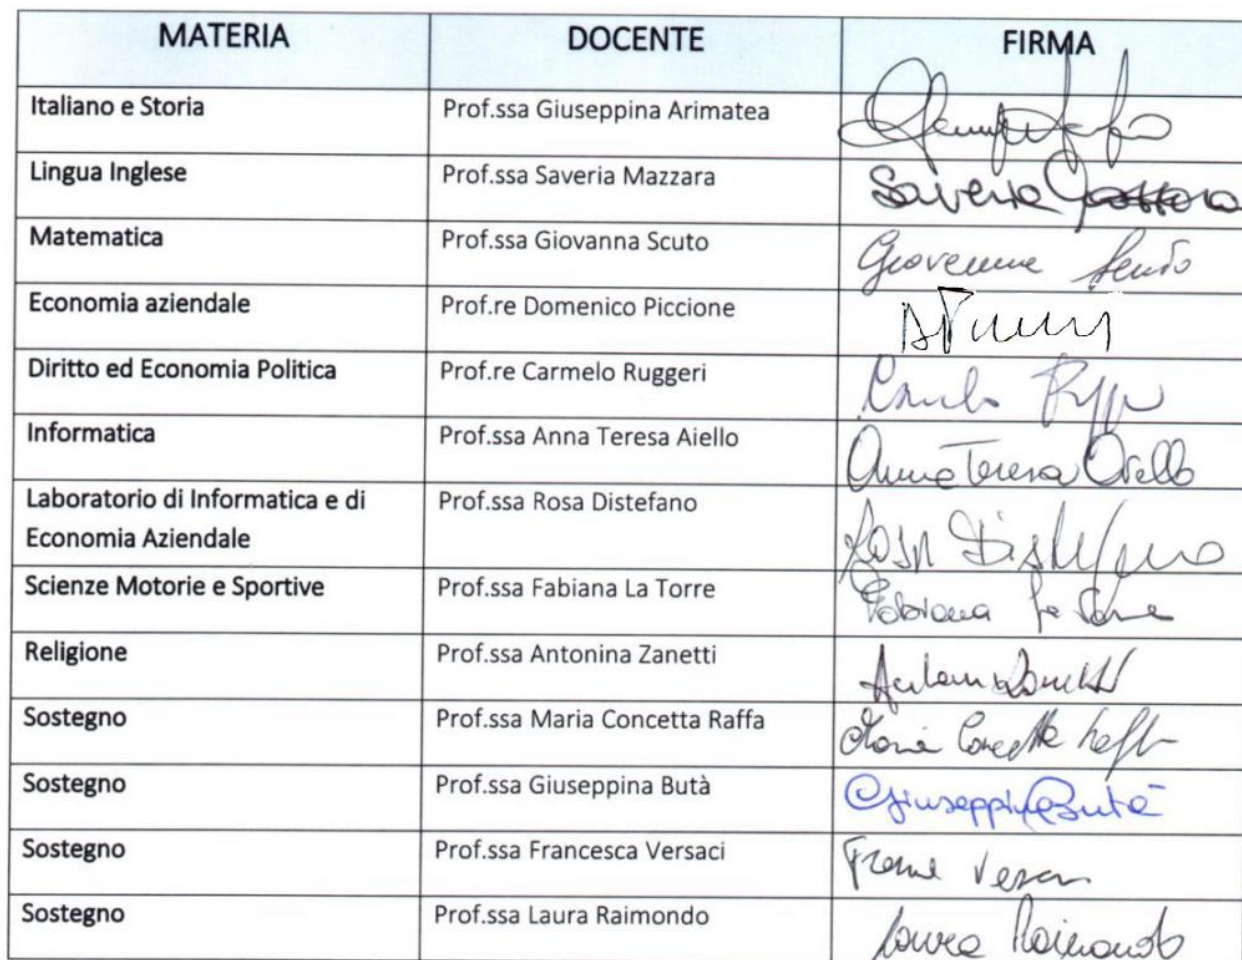 MATERIA DOCENTE FIRMA
Italiano e Storia Prof.ssa Giuseppina Arimatea
Lingua Inglese Prof.ssa Saveria Mazzara Saveria Mazzara
Matematica Prof.ssa Giovanna Scuto Giovanna Scuto
Economia aziendale Prof.re Domenico Piccione
Diritto ed Economia Politica Prof.re Carmelo Ruggeri
Informatica Prof.ssa Anna Teresa Aiello Anna Teresa Aiello
Laboratorio di Informatica e di
Economia Aziendale Prof.ssa Rosa Distefano Rosa Distefano
Scienze Motorie e Sportive Prof.ssa Fabiana La Torre Fabiana La Torre
Religione Prof.ssa Antonina Zanetti
Sostegno Prof.ssa Maria Concetta Raffa Maria Concetta Raffa
Sostegno Prof.ssa Giuseppina Butà Giuseppina Butà
Sostegno Prof.ssa Francesca Versaci
Sostegno Prof.ssa Laura Raimondo Laura Raimondo